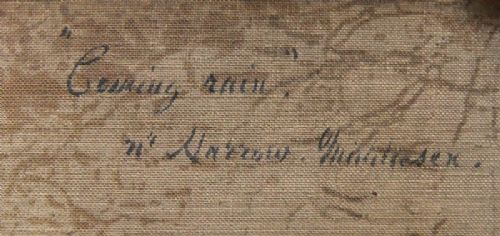 "Coming rain",
nr Harrow. Middlesex.